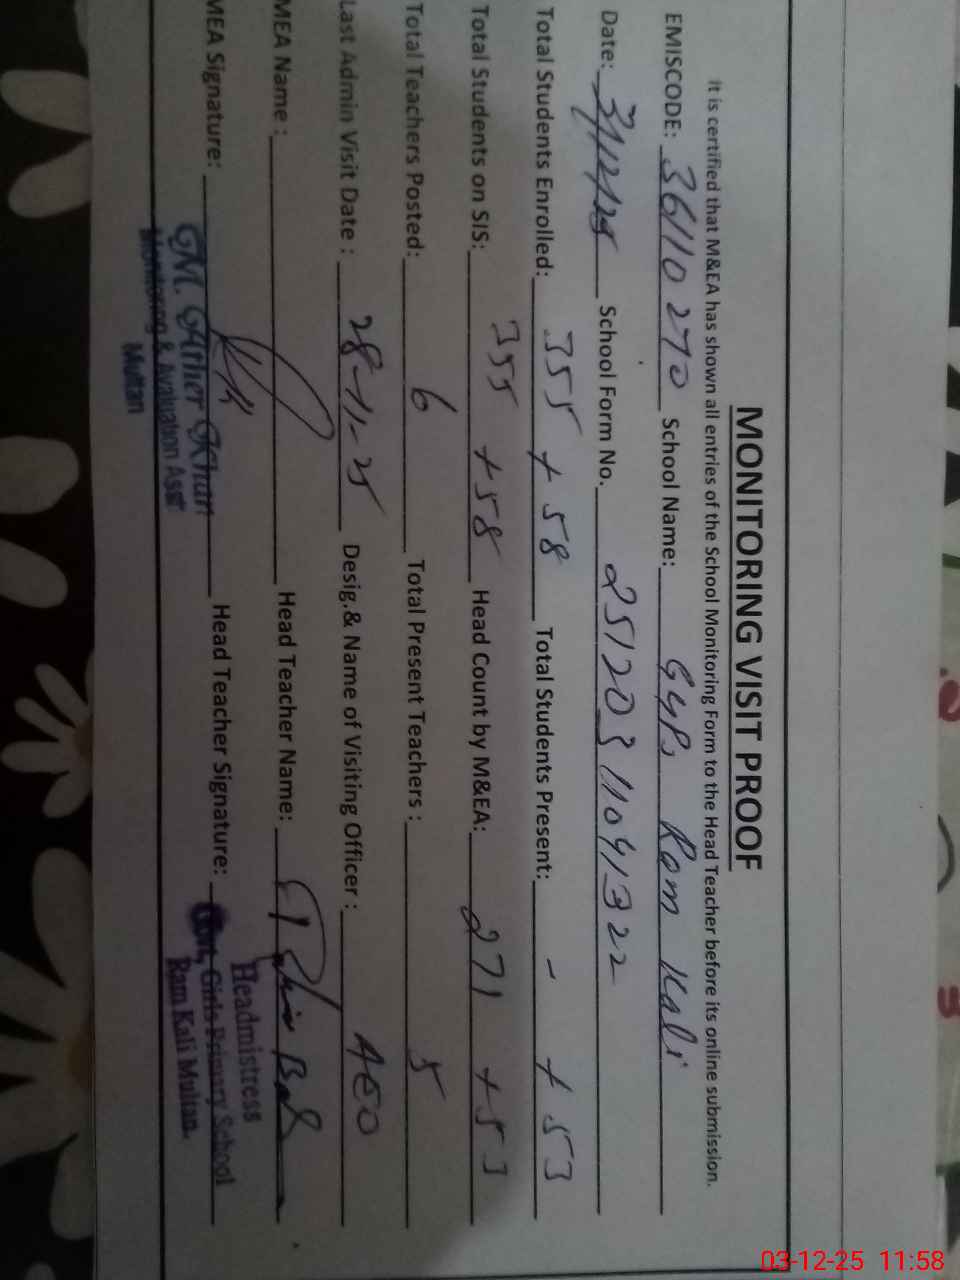 MONITORING VISIT PROOF
It is certified that M&EA has shown all entries of the School Monitoring Form to the Head Teacher before its online submission.
EMISCODE: 36110270 School Name: GGPS Ram Kali
Date: 3/12/25 School Form No. 251203 11041322
Total Students Enrolled: 355 + 58 Total Students Present: - + 53
Total Students on SIS: 355 + 58 Head Count by M&EA: 271 + 53
Total Teachers Posted: 6 Total Present Teachers : 5
Last Admin Visit Date : 28-11-25 Desig.& Name of Visiting Officer : AEO
MEA Name : Head Teacher Name:
MEA Signature: Head Teacher Signature:
M. Ather Khan
Monitoring & Evaluation Asst
Multan
Headmistress
Govt, Girls Primary School
Ram Kali Multan.
03-12-25 11:58